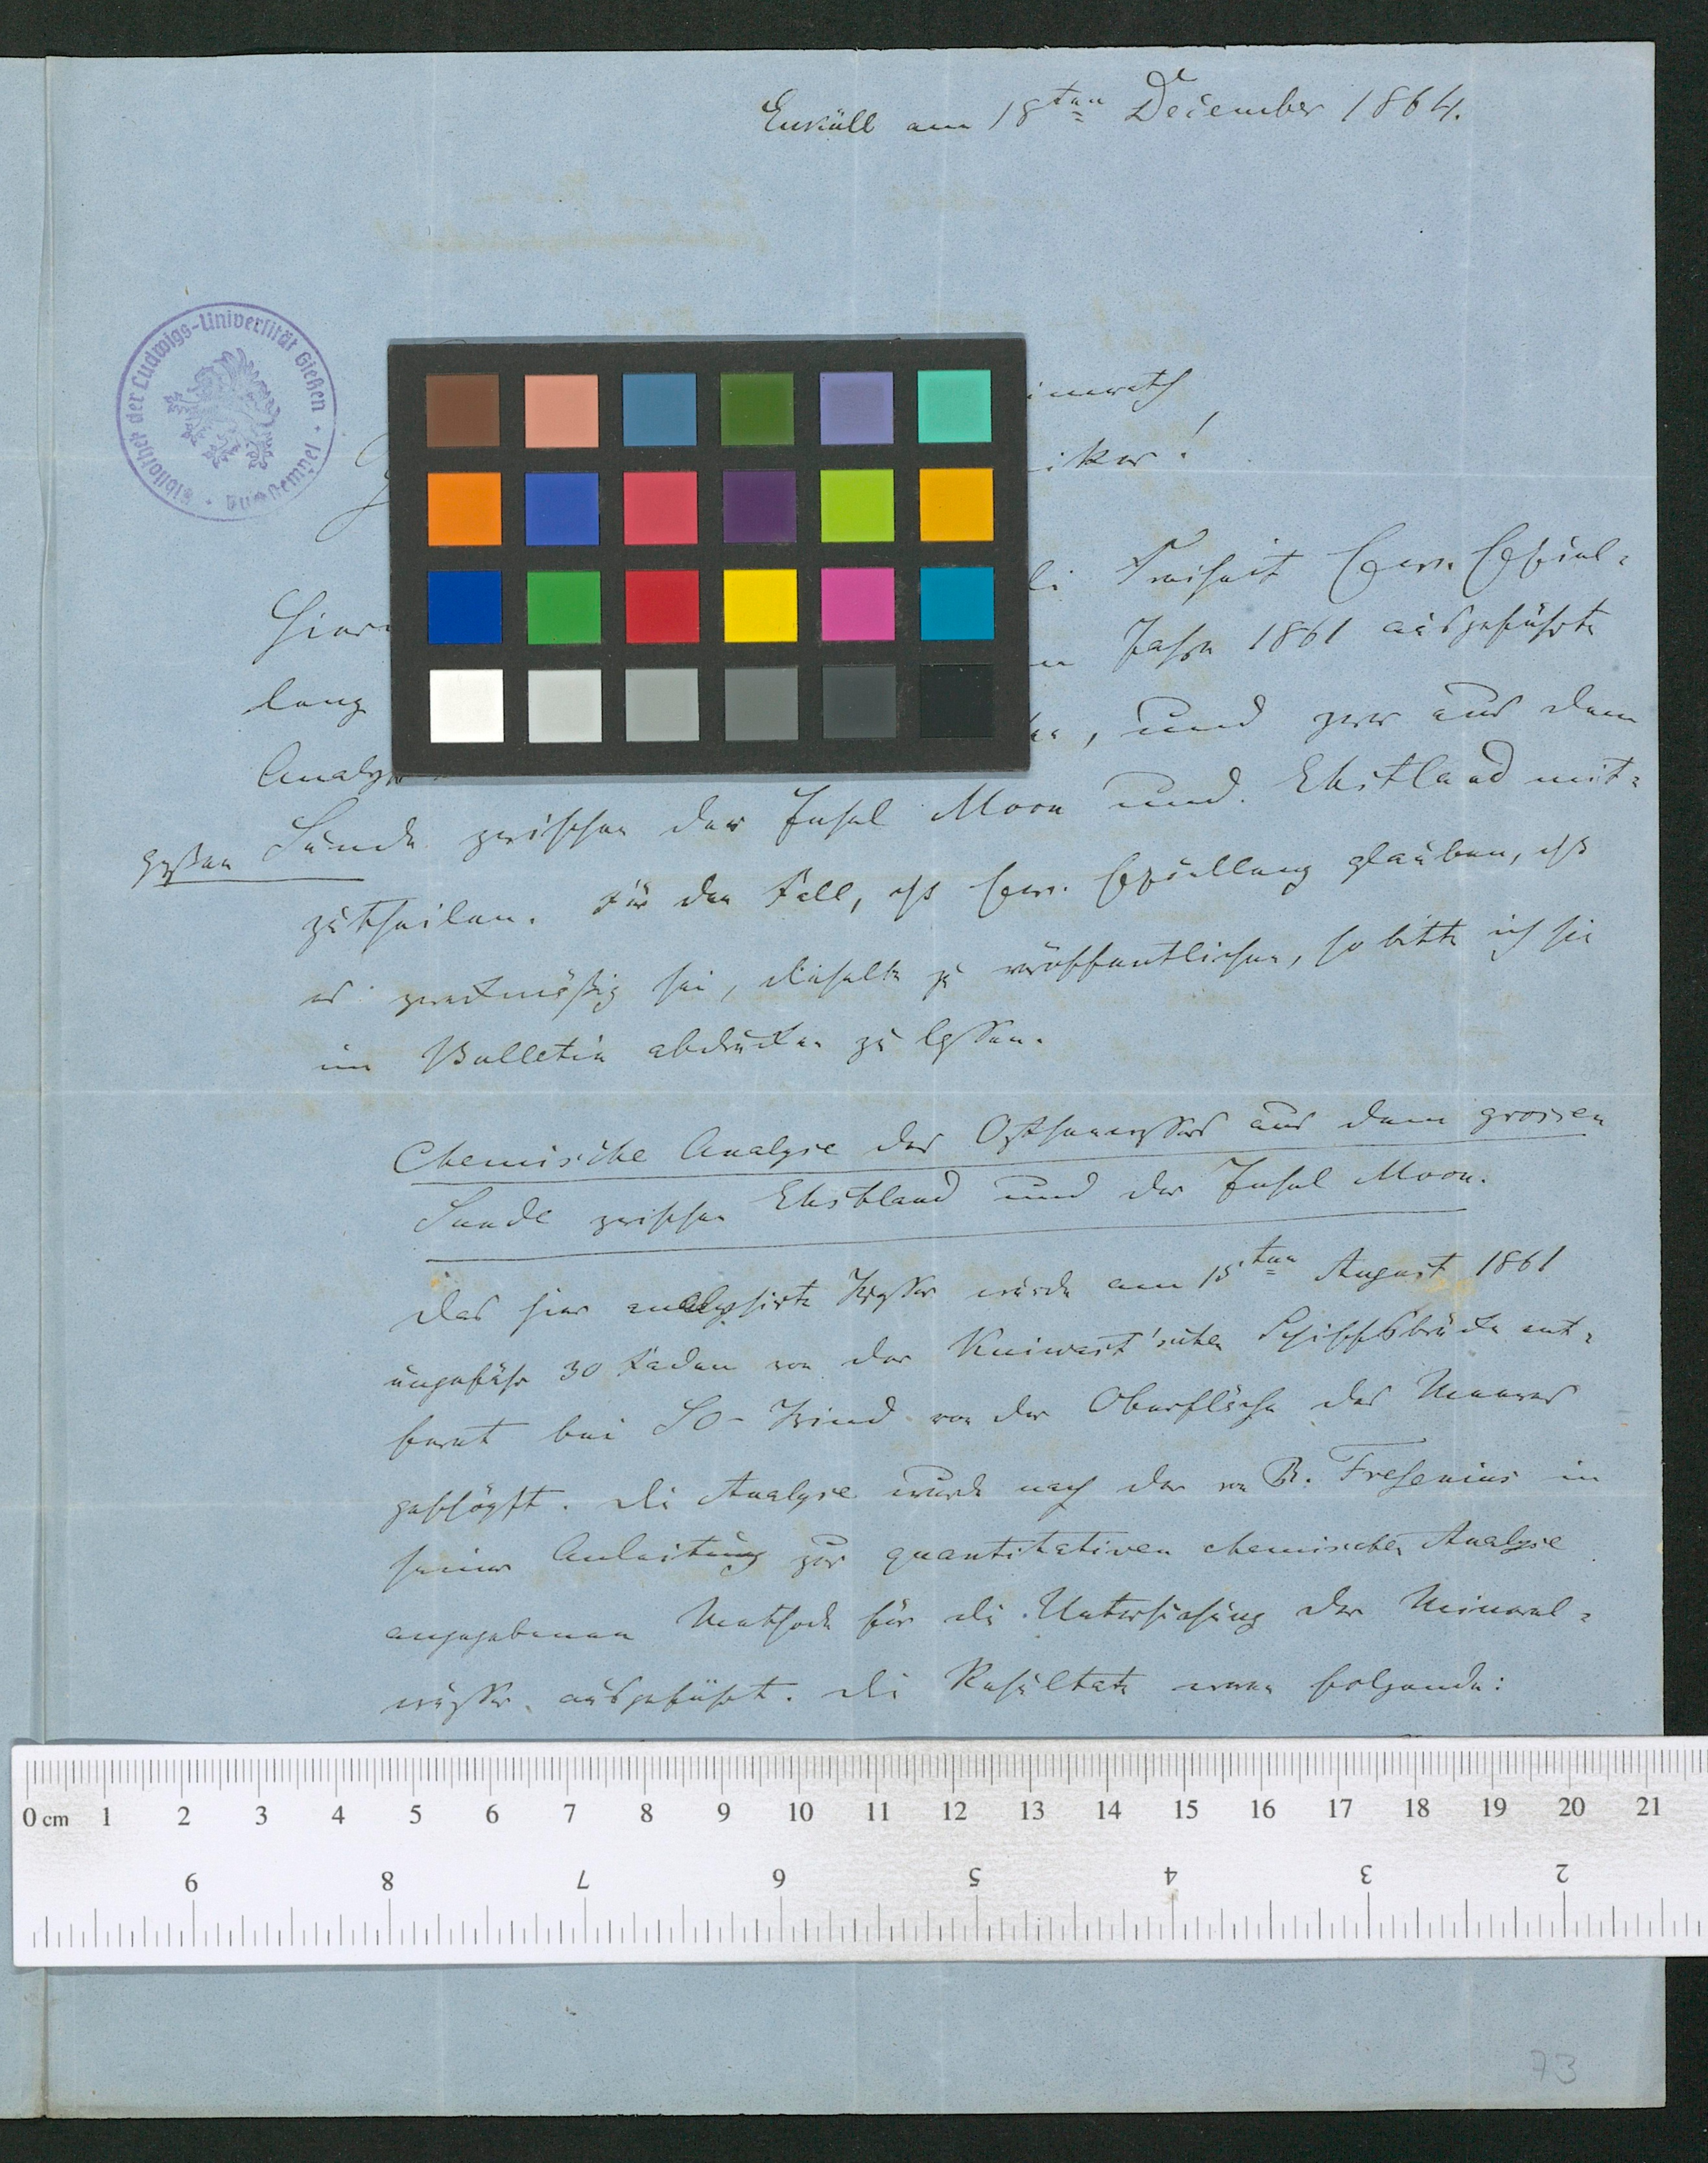 Enküll am 18ten December 1864.
Bibliothek der Ludwigs-Universität Gießen
imrath
iker!
Hier
die Freiheit Ew. Excel-
lenz
Jahre 1861 ausgeführte
Analyse
, und zwar aus dem
großen Sunde zwischen der Insel Moon und Ehstland mit-
zutheilen. Für den Fall, daß Ew. Excellenz glauben, daß
es zweckmäßig sei, dieselbe zu veröffentlichen, so bitte ich sie
im Bulletin abdrucken zu lassen.
Chemische Analyse des Ostseewassers aus dem grossen
Sunde zwischen Ehstland und der Insel Moon.
Das hier analysirte Wasser wurde am 15ten August 1861
ungefähr 30 Faden von der Kuiwast'schen Schiffsbrücke ent-
fernt bei SO-Wind von der Oberfläche des Meeres
geschöpft. Die Analyse wurde nach der von R. Fresenius in
seiner Anleitung zur quantitativen chemischen Analyse
angegebenen Methode für die Untersuchung der Mineral-
wässer ausgeführt. Die Resultate waren folgende:
0 cm 1 2 3 4 5 6 7 8 9 10 11 12 13 14 15 16 17 18 19 20 21
9 8 7 6 5 4 3 2
73